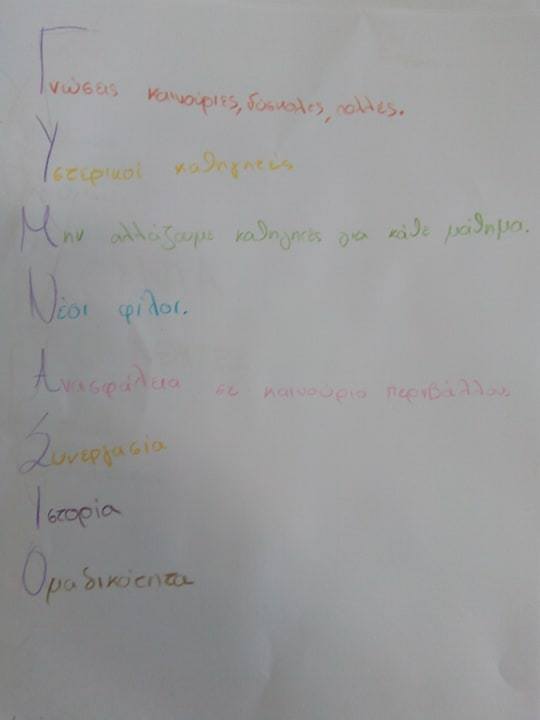 Γνώσεις καινούριες, δύσκολες, πολλές.
Υστερικοί καθηγητές
Μην αλλάζουμε καθηγητές για κάθε μάθημα.
Νέοι φίλοι.
Ανασφάλεια σε καινούριο περιβάλλον
Συνεργασία
Ιστορία
Ομαδικότητα